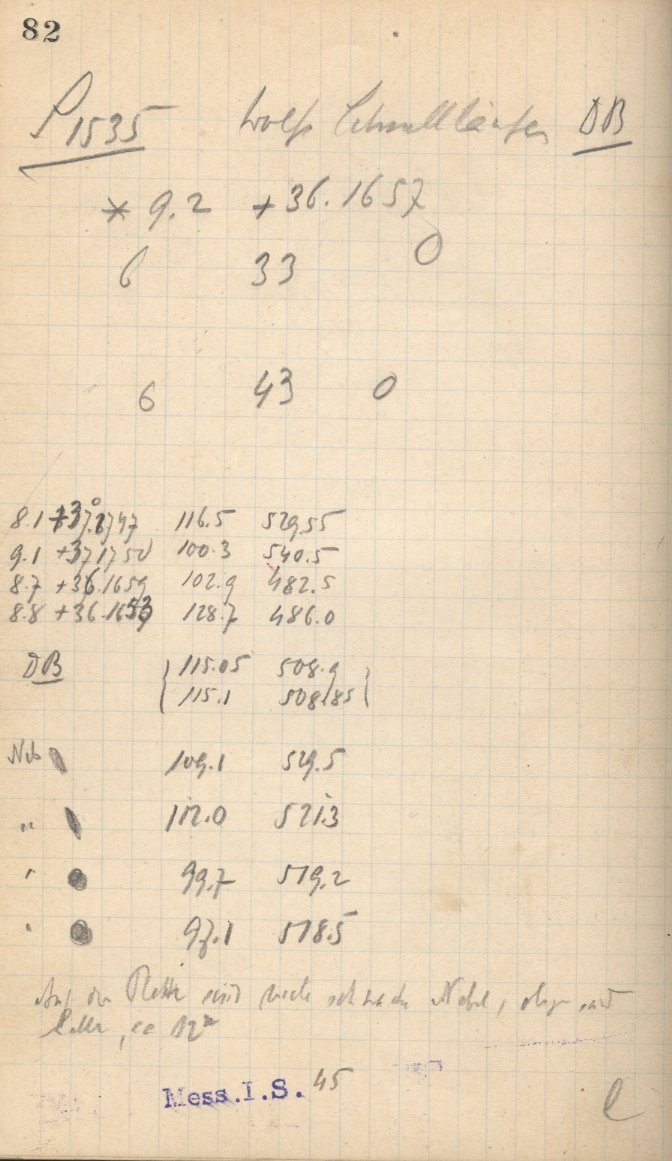 82
P 1535 Wolfs Schnellläufer DB
* 9.2 +36.1657
6 33 0
6 43 0
8.1 +37°1747 116.5 529.55
9.1 +37 1750 100.3 540.5
8.7 +36.1659 102.9 482.5
8.8 +36.1653 128.7 486.0
DB 115.05 508.9
115.1 508.85
Neb 109.1 529.5
" 112.0 521.3
" 99.7 519.2
" 97.1 518.5
Auf der Platte sind viele schwache Nebel, obige sind
heller, ca 12
Mess.I.S. 45